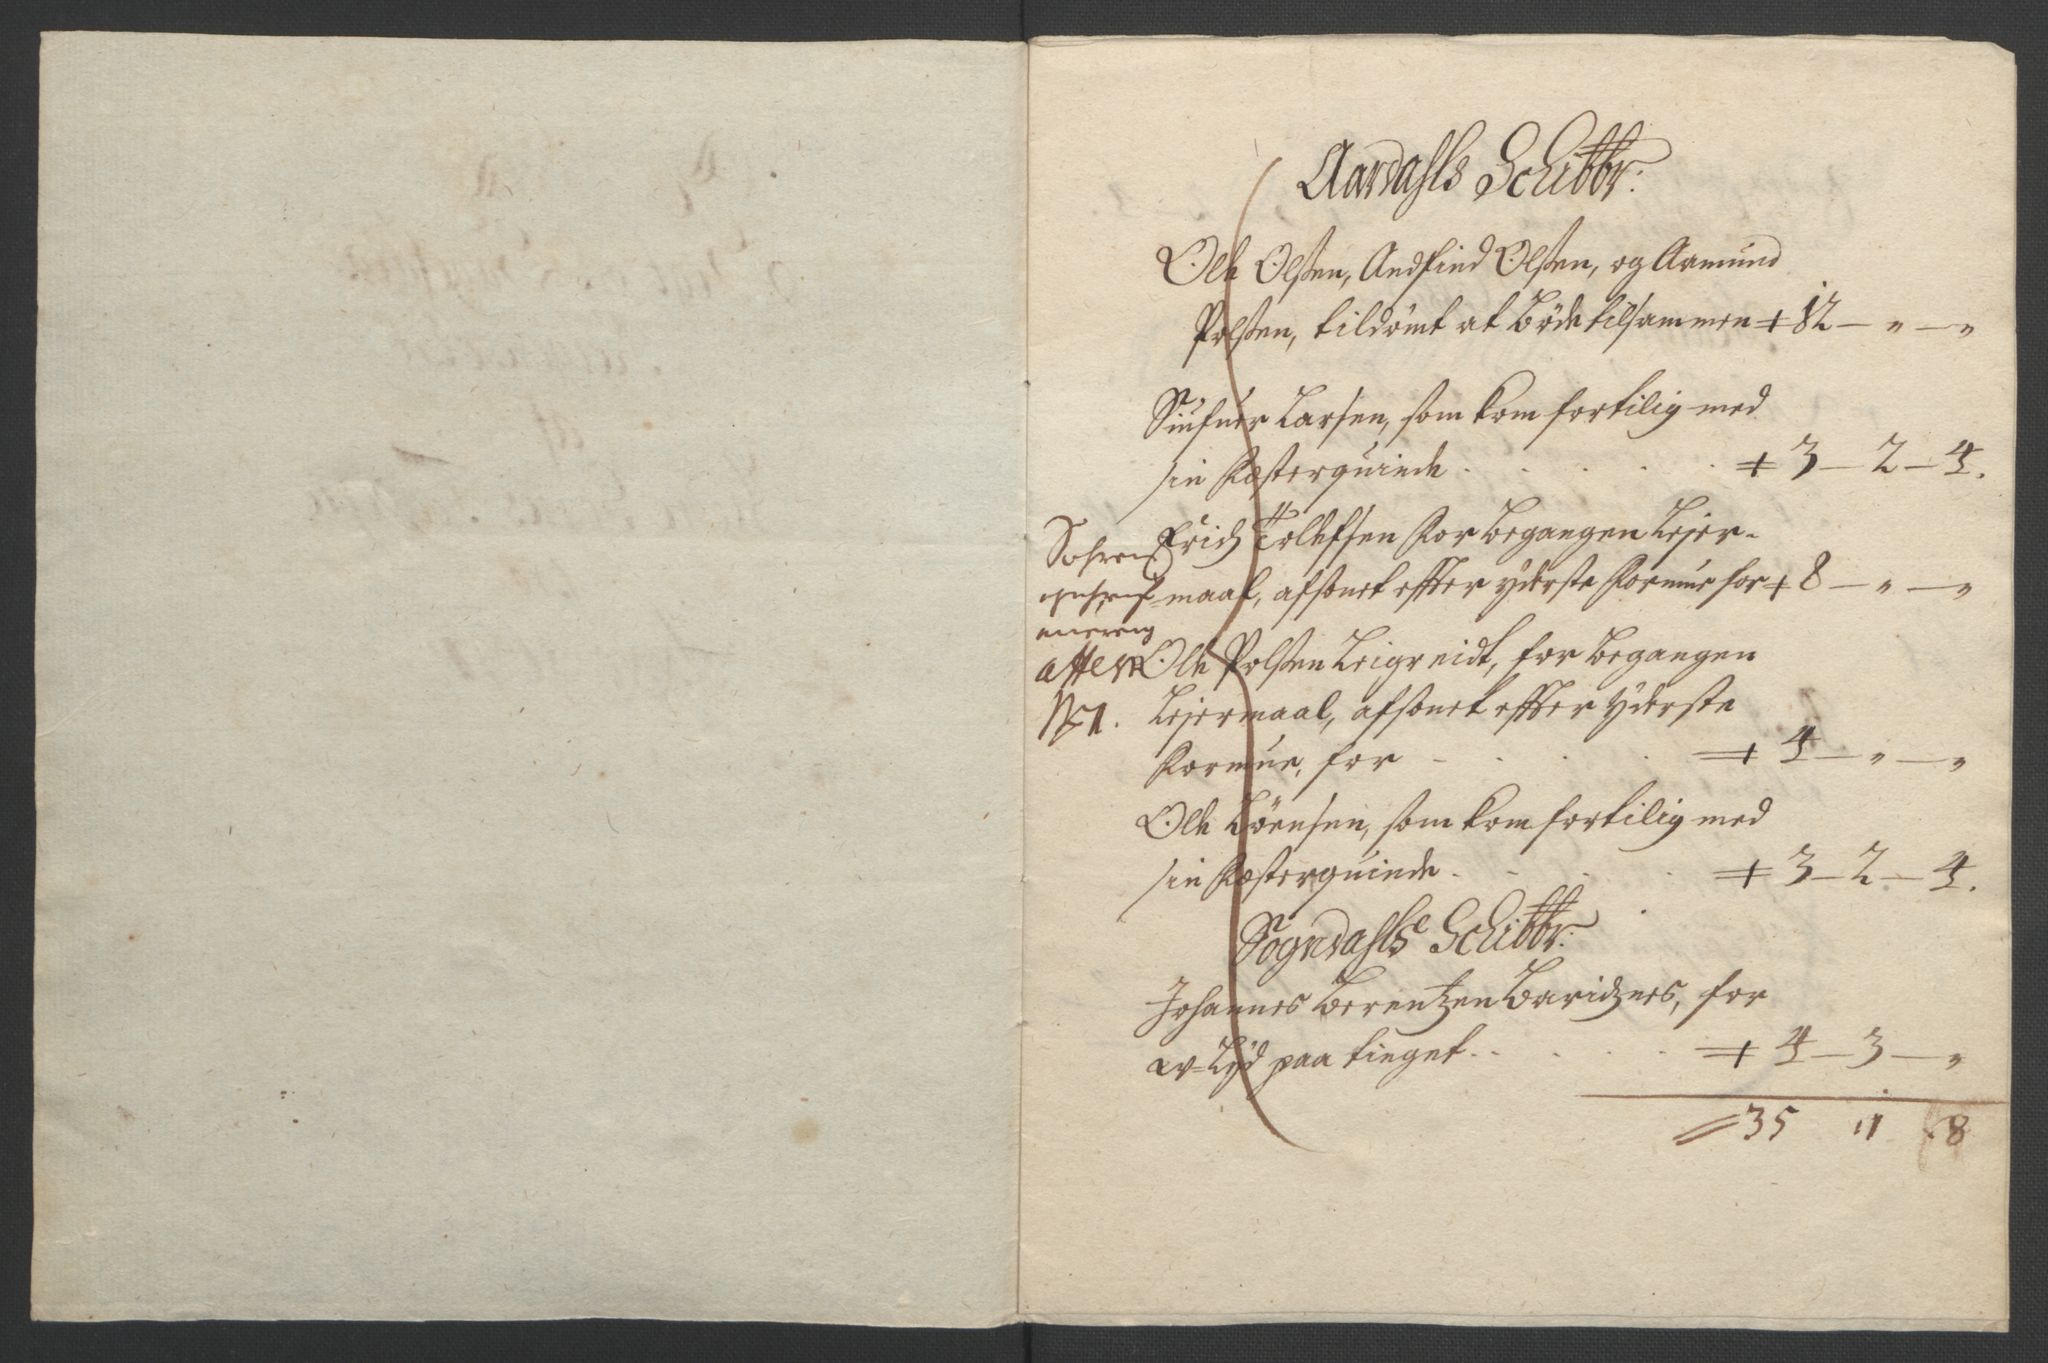 Aardahls Schibbr:
Ole Olsen, Andfind Olsen, og Aamund
Polsen, tildömt at böde tilsammen + 12 — " — "
Siufuer Larsen, som kom fortilig med
sin Festerquinde . . . . . + 3 — 2 — 4.
Erich Tolefsen For begangen Lejer-
maal, afsonet effter yderste Formue for + 8 — " — "
attest
No 1.
Ole Polsen Leigreidt, for begangen
Lejermaal, afsonet effter yderste
Formue, for - . . . + 4 — " — "
Ole Börensen, som kom fortilig med
sin Festerquinde . . . . + 3 — 2 — 4.
Sogndahls Schibbr:
Johannes Berentzen Baridznes, for
liud paa tinget . . . . . + 4 — 3 — "
35 11 8